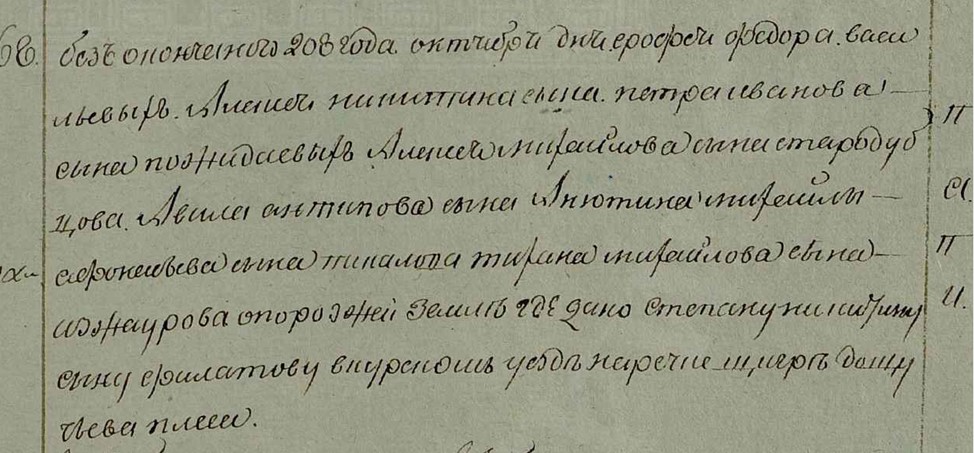 68. безъ окончанiя 208 года. октября дня, ерофея федора. васи
льевыхъ. Алексея никитина сына. петра иванова
сына пожидаевыхъ Алексея михайлова сына стародуб
цова. Авила антипова сына Анютина михайлы
афонасьева сына пикалова тихана михайлова сына
изжаурова опорозжей земле где дано степану никифину
сыну филатову вкурскомъ уезде наречке щигре долгу
чьева плеса.
П
А.
П
И.